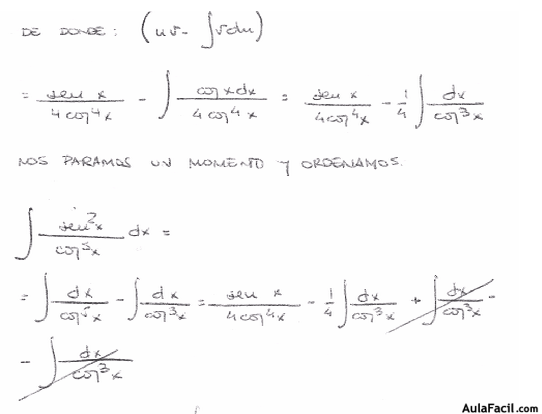 DE DONDE: (uv - ∫vdu)
= sen x / 4 cos⁴x - ∫ cos x dx / 4 cos⁴x = sen x / 4cos⁴x - 1/4 ∫ dx / cos³x
NOS PARAMOS UN MOMENTO Y ORDENAMOS.
∫ sen²x / cos⁵x dx =
= ∫ dx / cos⁵x - ∫ dx / cos³x = sen x / 4cos⁴x - 1/4 ∫ dx / cos³x + ∫ dx / cos³x -
- ∫ dx / cos³x
AulaFacil.com